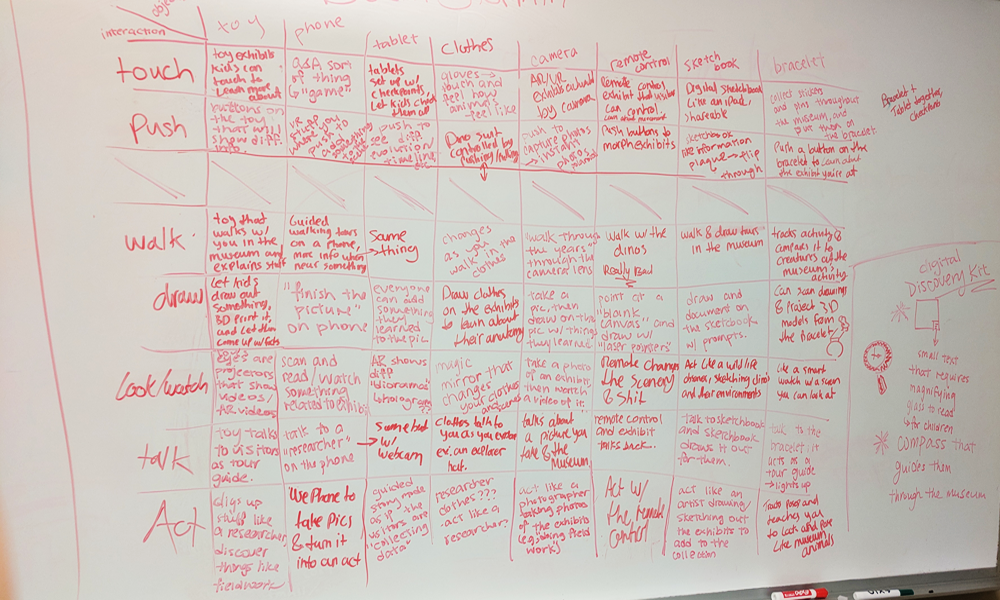 object
interaction
toy
phone
tablet
clothes
camera
remote
control
sketch
book
bracelet
touch
toy exhibits
kids can
touch to
learn more
about
a S A sort
of thing
"game"
tablets
set up w/
checkpoints,
Let kids check
them off
gloves →
touch and
feel how
animals
feel like
AR/VR
Exhibits
toy camera
Remote control
exhibit that visitor
can control
Digital sketchbook
like an ipad,
shareable
collect stickers
and pins throughout
the museum, and
put them on
the bracelet
Bracelet +
Tablet together,
checkpoints
Push
buttons on
the toy
that will
show diff
info.
where you
push to
add
push to
see diff
evolution/
timeline
Dino suit
controlled by
pushing/pulling
push to
capture photos
→ instant
photos
Push buttons to
morph exhibits
sketchbook
like information
plaque → flip
through
Push a button on the
bracelet to learn about
the exhibit you're at
walk
toy that
walks w/
you in the
museum and
explains stuff
Guided
walking tours
on a phone,
more info when
near something
Same
→ thing
changes
as you
walk in the
clothes
"walk through
the years"
through the
camera lens
walk w/ the
dinos
Really Bad
walk & draw tours
in the museum
tracks activity &
compares it to
creatures of the
museum's
activity
draw
Let kids
draw out
something,
3D Print it,
and Let them
come up w/ facts
"finish the
picture"
on phone
everyone
can add
something
they
learned
to the pic
Draw clothes
on the exhibits
to learn about
their anatomy
take a
pic, then
draw on the
pic w/ things
they learned
point at a
"blank
canvas" and
draw w/
"laser pointers"
draw and
document on
the sketchbook
w/ prompts.
Can scan drawings
& Project 3D
models from
the bracelet
Look/watch
eyes are
projectors
that show
videos/
AR videos
scan and
read/watch
something
related to exhibits
AR shows
diff
"dioramas"
magic
mirror that
changes
your clothes
and scenes
take a photo
of an exhibit,
then watch
a video of it.
Remote Change
the Scenery
& Shit
Act like a wild life
observer, sketching dinos
and their environments
Like a smart
watch w/ screen
you can look at
talk
toy talks
to visitors
as tour
guide.
talk to a
"researcher"
on the phone
→ w/
webcam
Clothes talk to
you as you explore
ex: an explorer
hat.
talks about
a picture you
take @ the
Museum.
remote control
and exhibit
talks back...
Talk to sketchbook
and sketchbook
draws it out
for them.
talk to the
bracelet, it
acts as a
tour guide
→ lights up
Act
digs up
stuff like
a researcher,
discover
things like
fieldwork
Use Phone to
take Pics
& turn it
into an act
guided
story made
as if the
visitors are
"collecting
data"
researcher
clothes???
act like a
researcher?
act like a
photographer
taking photos
of the exhibits
(e.g. "doing field
work")
Act w/
the remote
control
act like an
artist drawing/
sketching out
the exhibits to
add to the
collection
poses and
teaches you
to look and pose
like museum
animals
digital
Discovery Kit
small text
that requires
magnifying
glass to read
↳ for children
compass that
guides them
through the museum
EXPO
EXPO